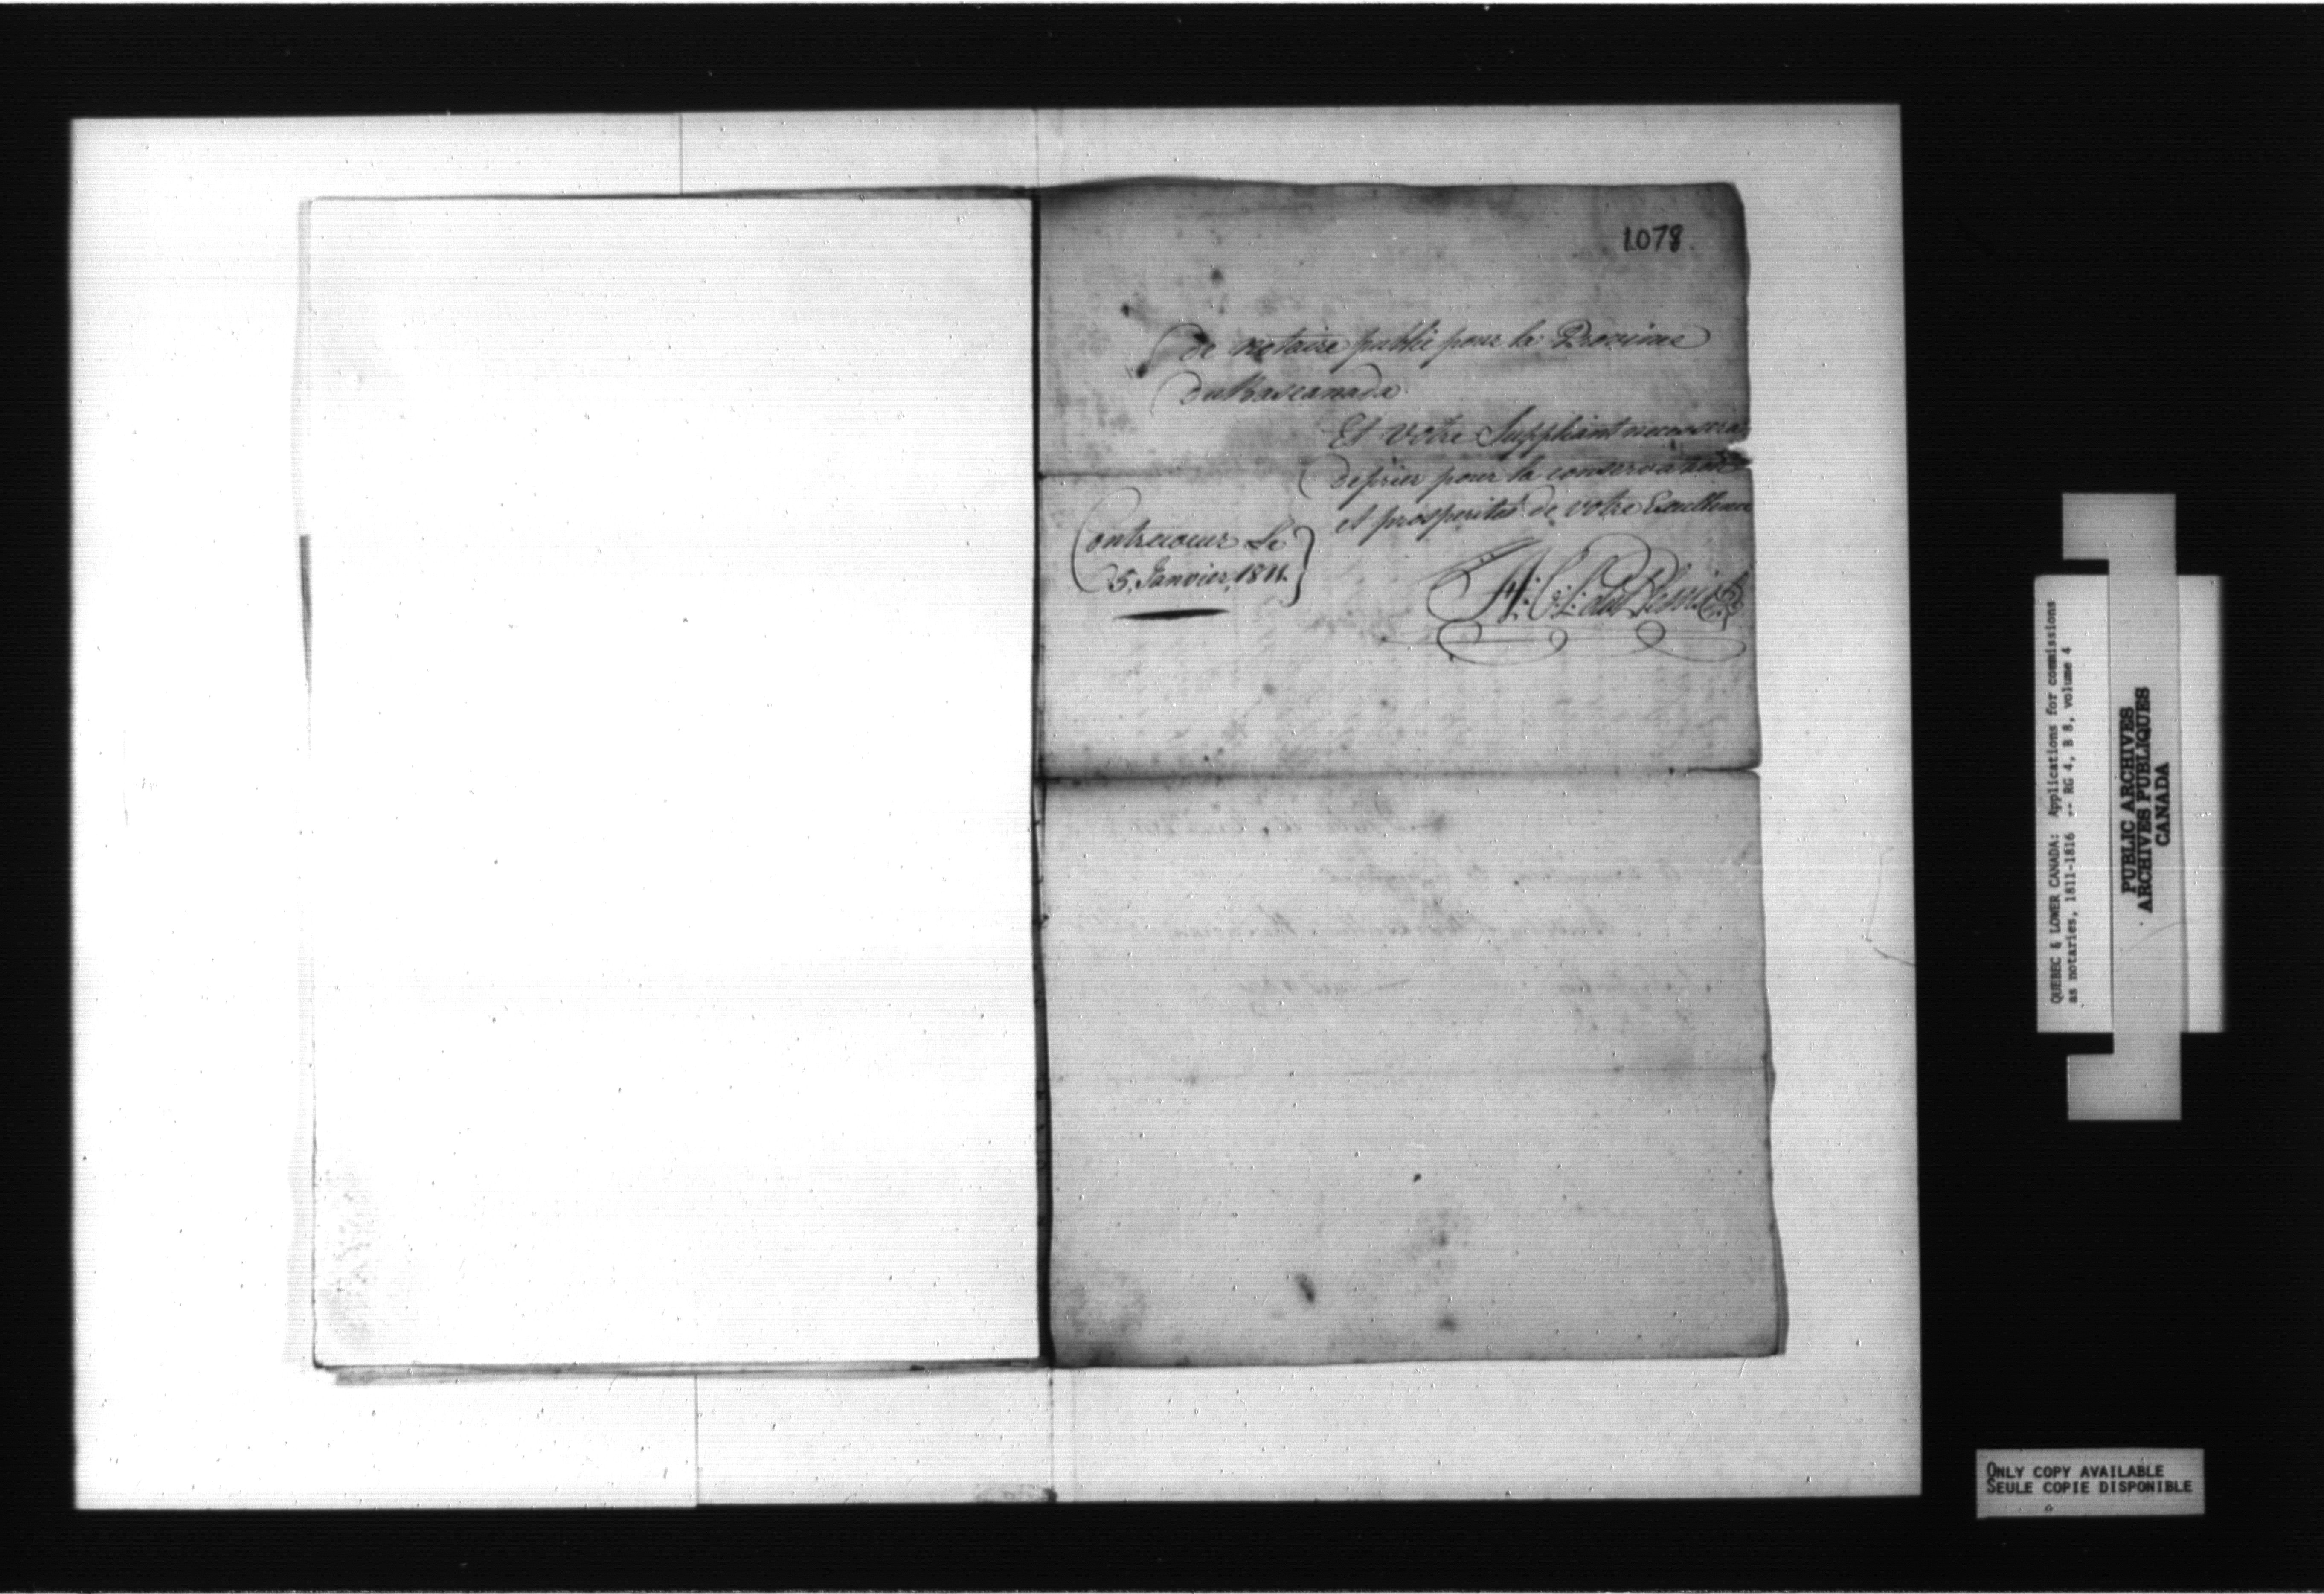 1078
de notaire public pour la Province
du Bascanada.
Et votre Suppliant necessera
deprier pour la conservation
et prosperités de votre Excellence
Contrecoeur Le
5. Janvier, 1811.
QUEBEC & LOWER CANADA: Applications for commissions
as notaries, 1811-1816 -- RG 4, B 8, volume 4
PUBLIC ARCHIVES
ARCHIVES PUBLIQUES
CANADA
ONLY COPY AVAILABLE
SEULE COPIE DISPONIBLE